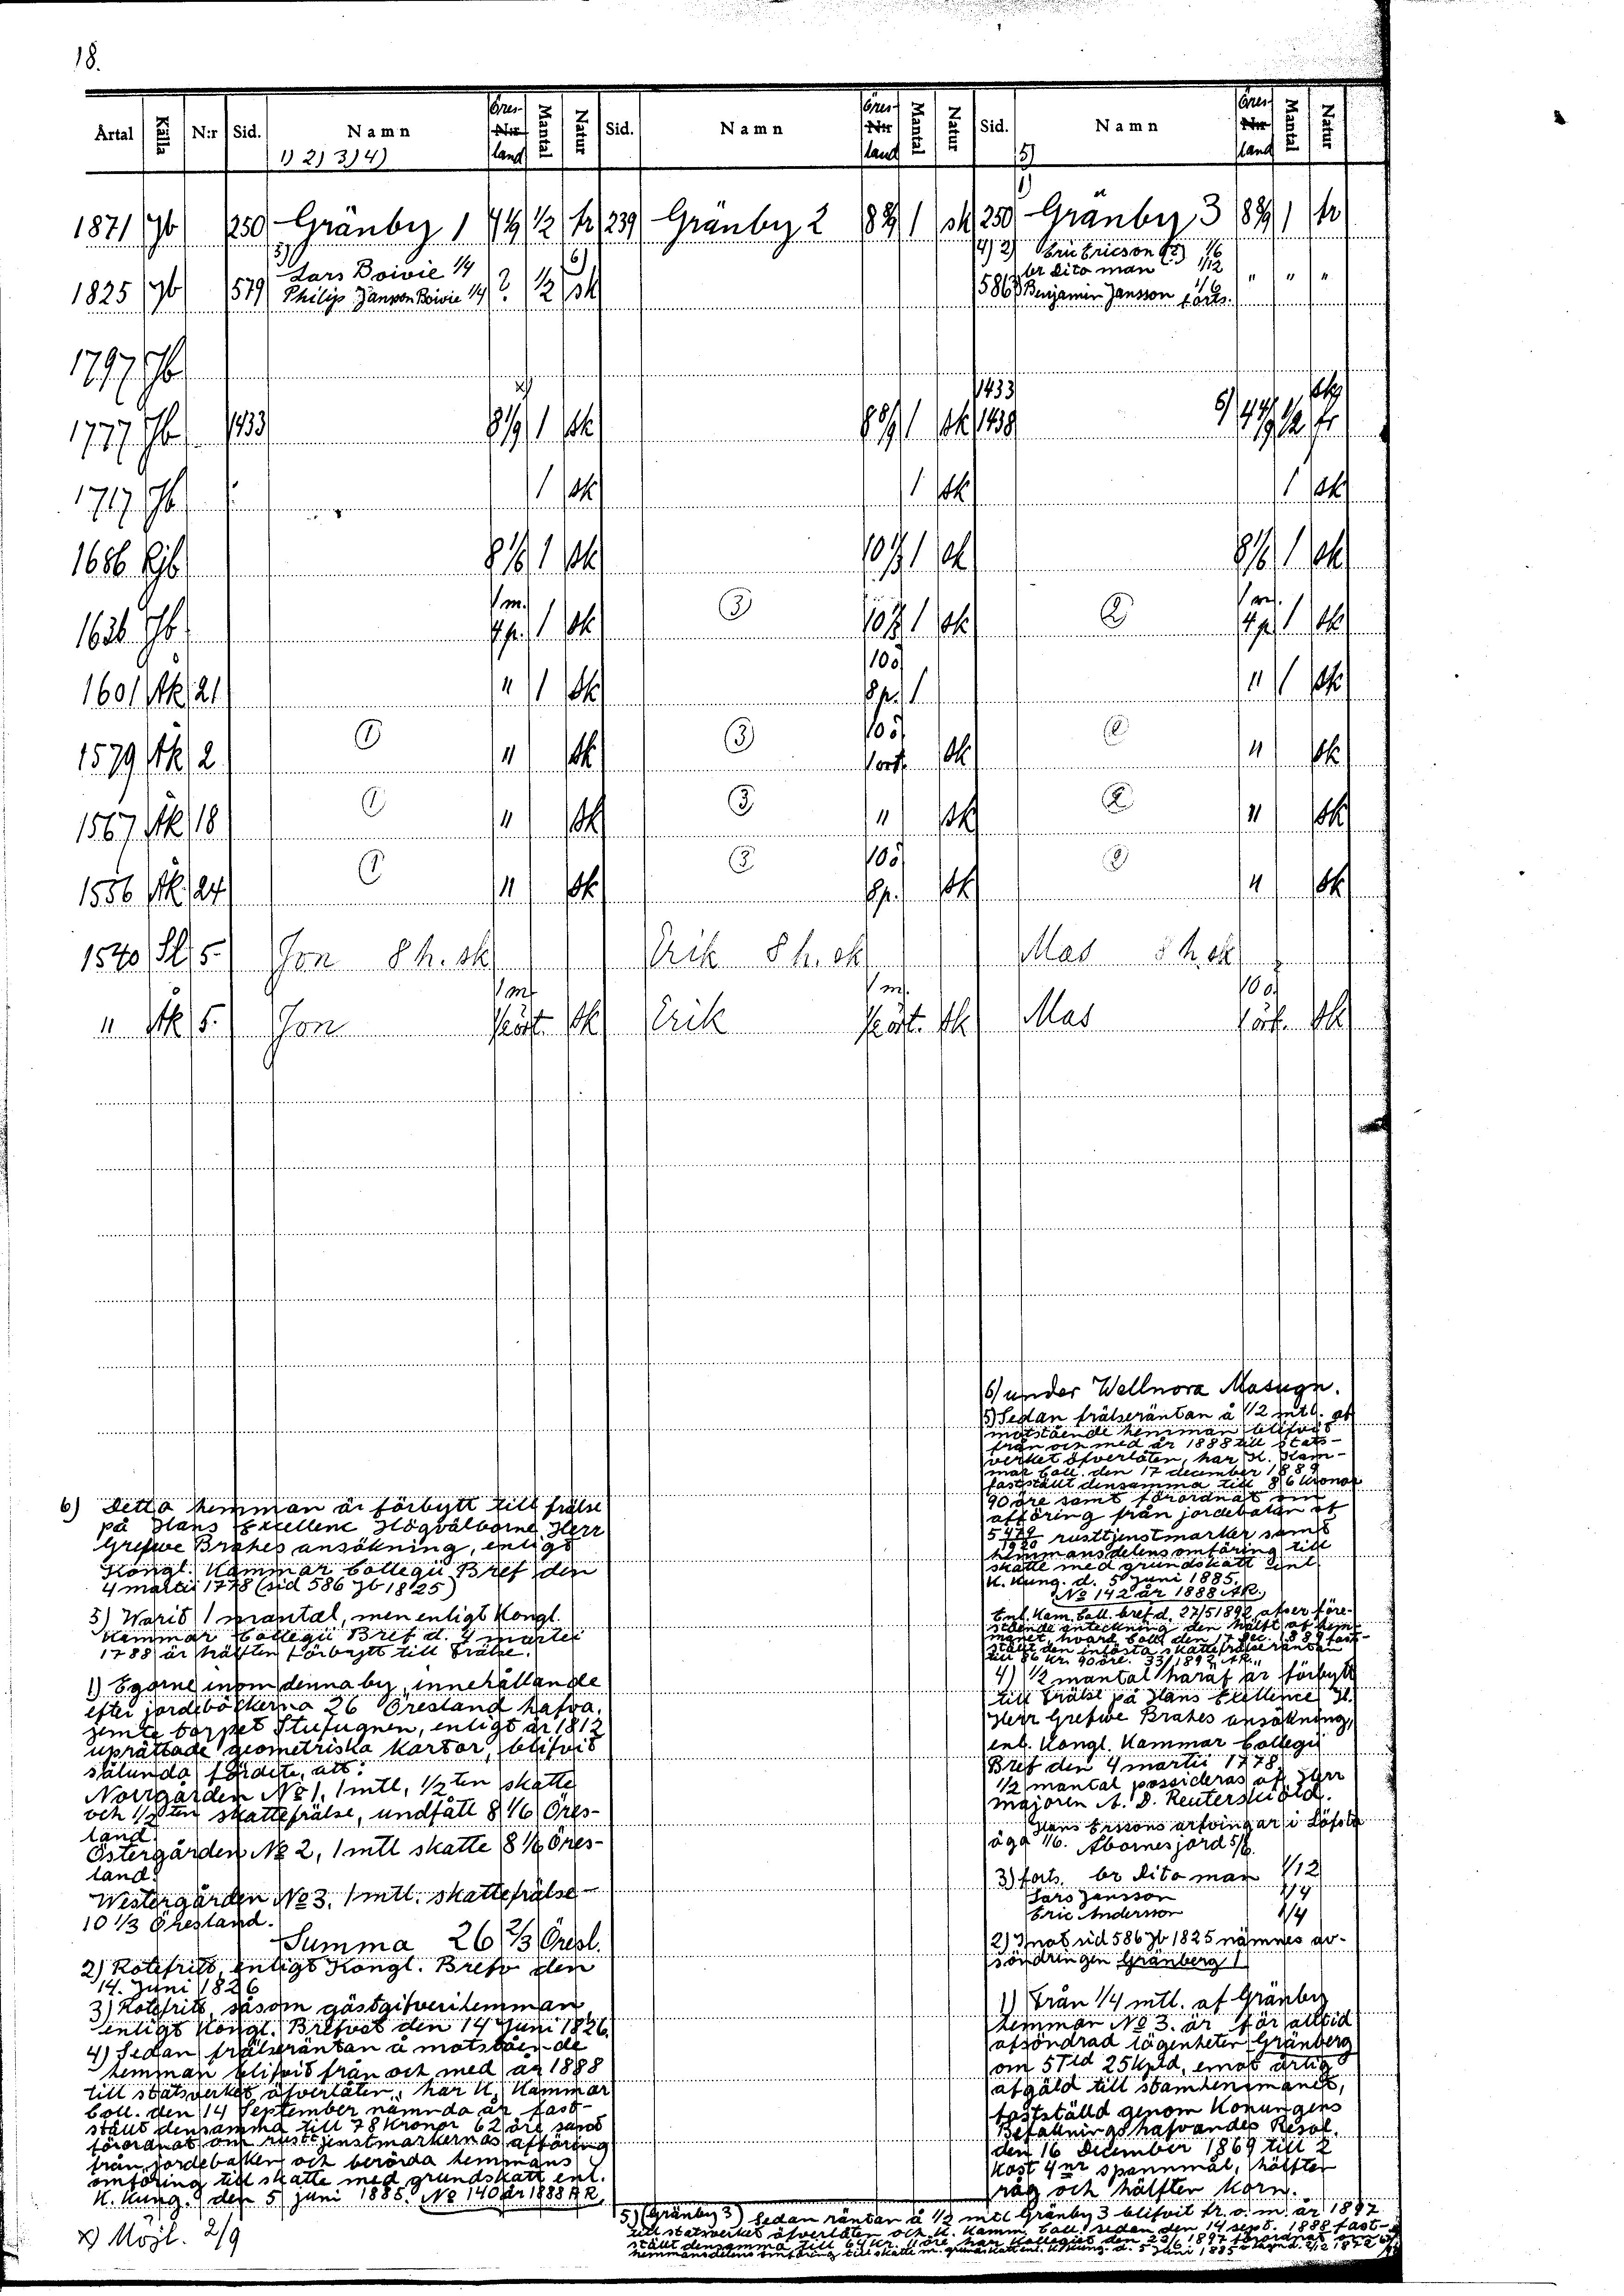 18.
Årtal Källa N:r Sid. Namn Öres land Mantal Natur Sid. Namn Öres land Mantal Natur Sid. Namn Öres land Mantal Natur
1) 2) 3) 4) 5)
1871 Jb 250 Gränby 1 1/2 fr 239 Gränby 2 1 sk 250 Gränby 3 1 fr
1825 Jb 579 Lars Boivie 1/4 ? 1/2 sk
Philip Janson Boivie 1/4
4) 2) Eric Ericson 1/6
br dito man 1/12
586 3) Benjamin Jansson 1/6 forts. " " "
1797 Jb
1777 Jb 1433 1 sk 1 sk 1433 1438 1/2 fr
1717 Jb 1 sk 1 sk 1 sk
1686 1 sk 1 sk 1 sk
1636 Jb 1 m. 1 sk (3) 1 sk (2) 1 m. 1 sk
1601 21 " 1 sk 8 p. 1 " 1 sk
1579 2 (1) " sk (3) sk (2) " sk
1567 18 (1) " sk (3) " sk (2) " sk
1556 24 (1) " sk (3) 8 p. sk (2) " sk
1540 5 Jon 8 h. sk Erik 8 h. sk Mas 8 h. sk
" 5. Jon 1 m. sk Erik 1 m. sk Mas sk
6) Detta hemman är förbytt till frälse
på Hans Excellenc Högvälborne Herr
Grefwe Brahes ansökning, enligt
Kongl. Kammar Collegii Bref den
4 martii 1778 (sid 586 Jb 1825)
5) Warit 1 mantal, men enligt Kongl.
Kammar Collegii Bref d. 4 martii
1788 är hälften förbytt till Frälse.
1) Egarne inom denna by, innehållande
efter jordeböckerna 26 Öresland hafva,
jemte torpet Stufugnen, enligt år 1812
uprättade geometriska Kartor, blifvit
sålunda förde, att:
Norrgården No 1, 1 mtl, 1/2 ten skatte
och 1/2 ten skattefrälse, undfått 8 1/6 Öres-
land.
Östergården No 2, 1 mtl skatte 8 1/6 Öres-
land.
Westergården No 3. 1 mtl. skattefrälse –
10 1/3 Öresland.
Summa 26 2/3 Öresl.
2) Rotefritt, enligt Kongl. Bref den
14. Juni 1826
3) Rotefritt, såsom gästgifverihemman,
enligt Kongl. Brefvet den 14 Juni 1826.
4) Sedan frälseräntan å motståen de
hemman blifvit från och med år 1888
till statsverket öfverlåten, har K. Kammar
Coll. den 14 September nämnda år fast-
ställt densamma till 78 Kronor 62 öre samt
förordnat om rusttjenstmarkernas afföring
från jordeboken och berörda hemmans
omföring till skatte med grundskatt enl.
K. Kung. den 5 juni 1885. No 140 år 1888 AR.
x) Möjl. 2/9
6) under Wellnora Masugn.
5) Sedan frälseräntan å 1/2 mtl. af
motstående hemman blifvit
från och med år 1888 till stats-
verket öfverlåten, har K. Kam-
mar Coll. den 17 december 1889
fastställt densamma till 86 Kronor
90 öre samt förordnat om
afföring från jordeboken af
rusttjenstmarker samt
hemmansdelens omföring till
skatte med grundskatt enl.
K. Kung. d. 5 juni 1885.
No 142 år 1888 AR.
Enl. Kam. Coll. bref d. 27/5 1892 afser före-
stående anteckning den hälft af hem-
manet, hvars Coll. den 17 dec. 1889 fast-
ställt den inlösta skattefrälseräntan
till 86 kr. 90 öre. 33/1892 AR.
4) 1/2 mantal häraf är förbytt
till Frälse på Hans Exellence H.
Herr Grefwe Brahes ansökning,
enl. Kongl. Kammar Collegii
Bref den 4 martii 1778
1/2 mantal possideras af Herr
majoren A. D. Reuterskiöld.
Hans Ersons arfvingar i Löfsta
äga 1/6. Åbornes jord 5/6.
3) forts. br dito man 1/12
Lars Jansson 1/4
Eric Anderson 1/4
2) Invid sid 586 Jb 1825 nämnes av-
söndringen Gränberg 1
1) Från 1/4 mtl. af Gränby
hemman No 3. är för alltid
afsöndrad lägenheten Gränberg
om 5 Tld 25 Kpld, emot årlig
afgäld till stamhemmanet,
fastställd genom Konungens
Befallningshafvandes Resol.
den 16 December 1869 till 2
kast 4 nr spannmål, hälften
råg och hälften korn.
5) (Gränby 3) Sedan räntan å 1/2 mtl Gränby 3 blifvit fr. o. m. år 1887
till statsverket öfverlåten och K. Kamm. Coll. sedan den 14 sept. 1888 fast-
ställt densamma till 64 Kr. öre, har Kollegiet den 23/6 1897 förordnat om
hemmansdelens omföring till skatte m. grundskatt enl. K. Kung. d. 5 Juni 1885